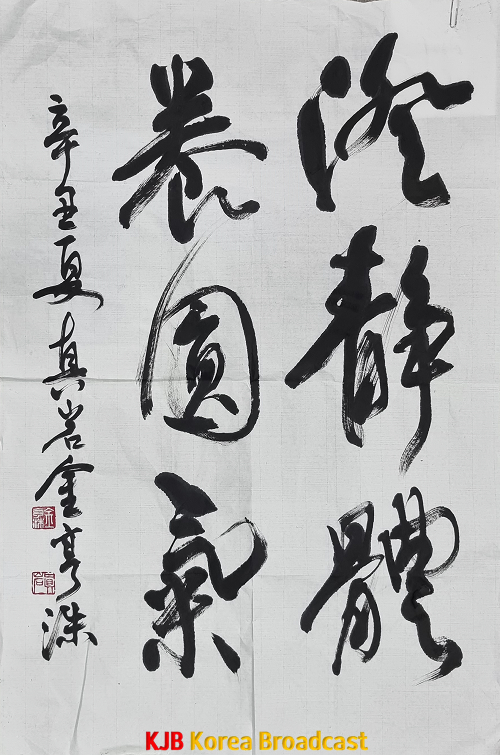 澄靜體
養圓氣
辛丑夏 真岩金亨洙
KJB Korea Broadcast